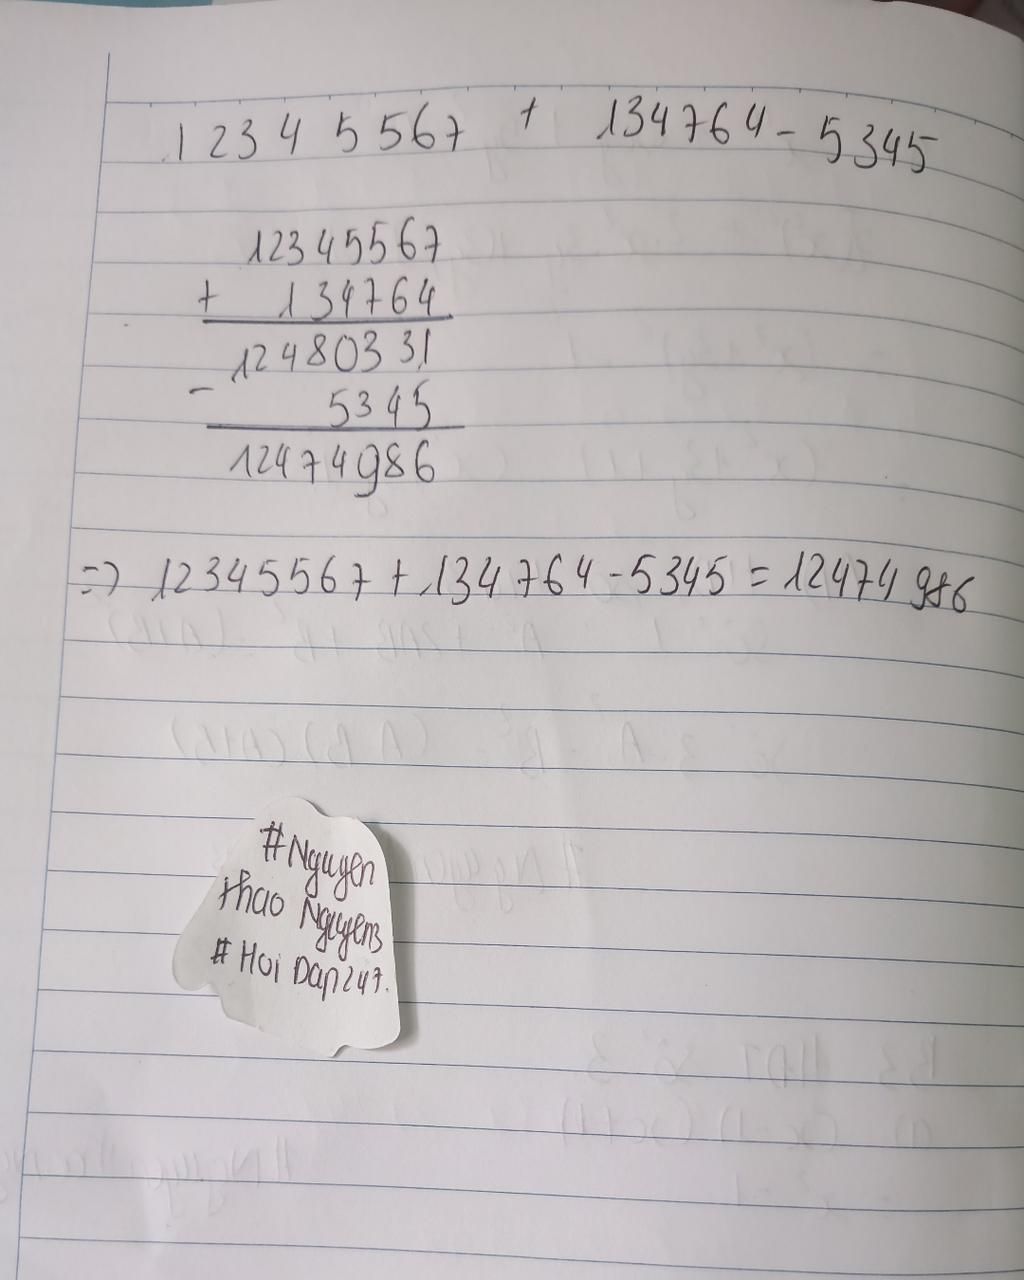 12345567 + 134764 - 5345
12345567
+ 134764
12480331
- 5345
12474986
=> 12345567 + 134764 - 5345 = 12474986
#Nguyen
thao Nguyen3
# Hoi Dap247.